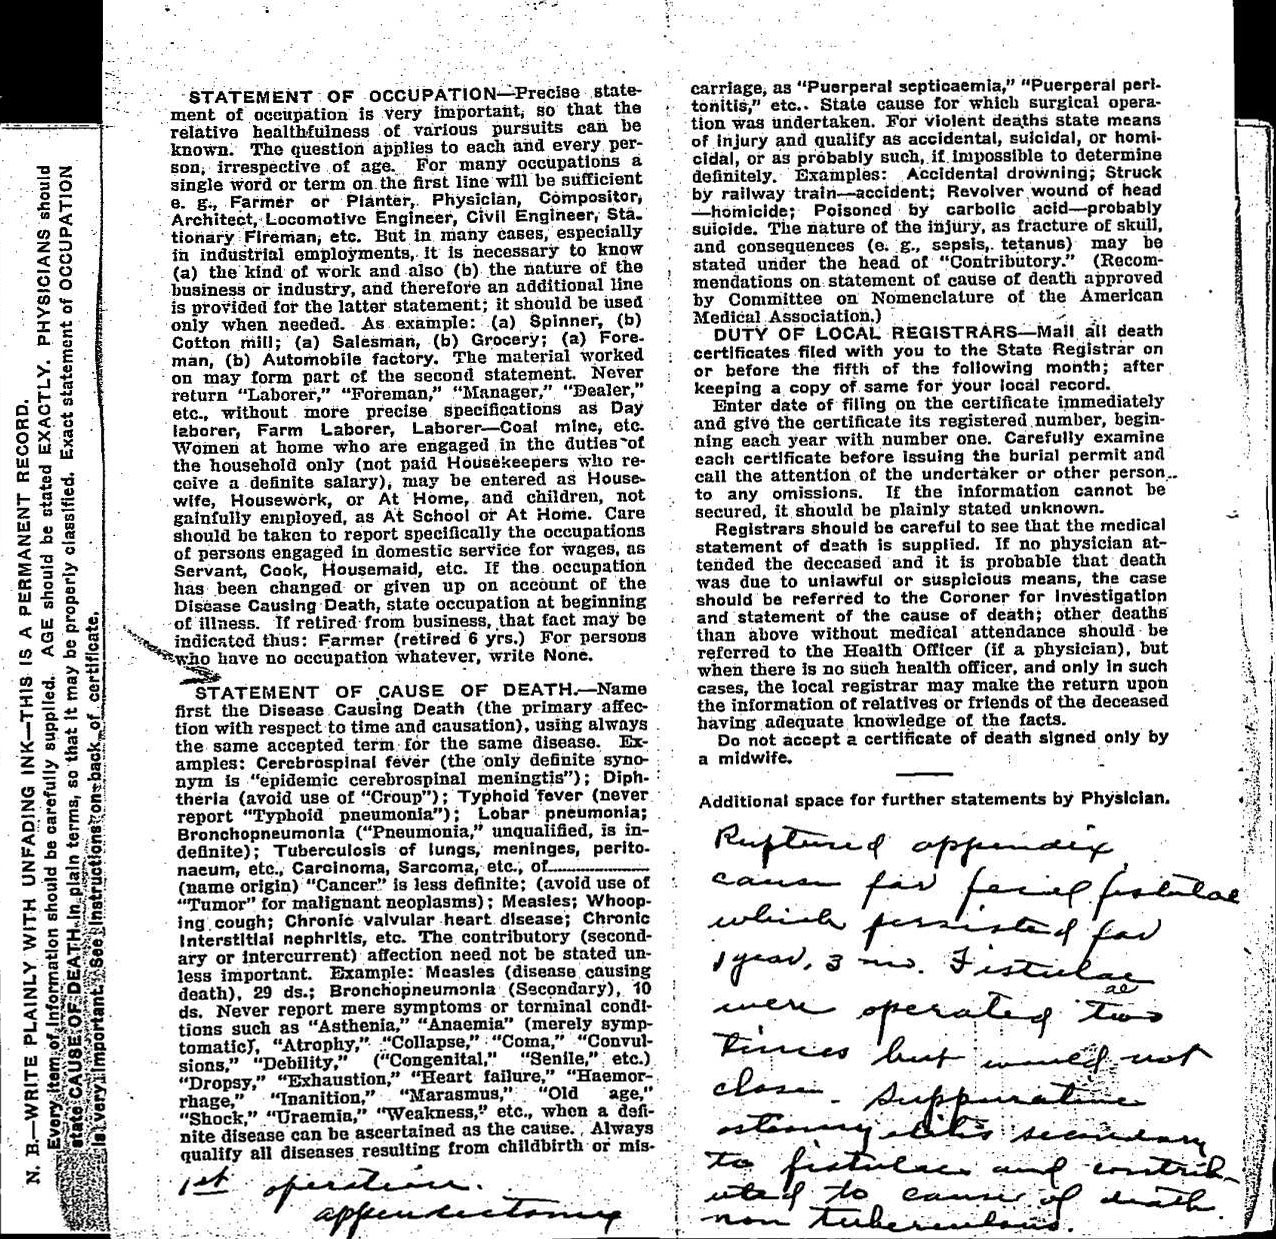 N. B.—WRITE PLAINLY WITH UNFADING INK—THIS IS A PERMANENT RECORD.
Every item of information should be carefully supplied. AGE should be stated EXACTLY. PHYSICIANS should
state CAUSE OF DEATH in plain terms, so that it may be properly classified. Exact statement of OCCUPATION
is very important. See instructions on back of certificate.
STATEMENT OF OCCUPATION—Precise state-
ment of occupation is very important, so that the
relative healthfulness of various pursuits can be
known. The question applies to each and every per-
son, irrespective of age. For many occupations a
single word or term on the first line will be sufficient
e. g., Farmer or Planter, Physician, Compositor,
Architect, Locomotive Engineer, Civil Engineer, Sta-
tionary Fireman, etc. But in many cases, especially
in industrial employments, it is necessary to know
(a) the kind of work and also (b) the nature of the
business or industry, and therefore an additional line
is provided for the latter statement; it should be used
only when needed. As example: (a) Spinner, (b)
Cotton mill; (a) Salesman, (b) Grocery; (a) Fore-
man, (b) Automobile factory. The material worked
on may form part of the second statement. Never
return "Laborer," "Foreman," "Manager," "Dealer,"
etc., without more precise specifications as Day
laborer, Farm Laborer, Laborer—Coal mine, etc.
Women at home who are engaged in the duties of
the household only (not paid Housekeepers who re-
ceive a definite salary), may be entered as House-
wife, Housework, or At Home, and children, not
gainfully employed, as At School or At Home. Care
should be taken to report specifically the occupations
of persons engaged in domestic service for wages, as
Servant, Cook, Housemaid, etc. If the occupation
has been changed or given up on account of the
Disease Causing Death, state occupation at beginning
of illness. If retired from business, that fact may be
indicated thus: Farmer (retired 6 yrs.) For persons
who have no occupation whatever, write None.
STATEMENT OF CAUSE OF DEATH.—Name
first the Disease Causing Death (the primary affec-
tion with respect to time and causation), using always
the same accepted term for the same disease. Ex-
amples: Cerebrospinal fever (the only definite syno-
nym is "epidemic cerebrospinal meningtis"); Diph-
theria (avoid use of "Croup"); Typhoid fever (never
report "Typhoid pneumonia"); Lobar pneumonia;
Bronchopneumonia ("Pneumonia," unqualified, is in-
definite); Tuberculosis of lungs, meninges, perito-
naeum, etc., Carcinoma, Sarcoma, etc., of..................
(name origin) "Cancer" is less definite; (avoid use of
"Tumor" for malignant neoplasms); Measles; Whoop-
ing cough; Chronic valvular heart disease; Chronic
interstitial nephritis, etc. The contributory (second-
ary or intercurrent) affection need not be stated un-
less important. Example: Measles (disease causing
death), 29 ds.; Bronchopneumonia (Secondary), 10
ds. Never report mere symptoms or terminal condi-
tions such as "Asthenia," "Anaemia" (merely symp-
tomatic), "Atrophy," "Collapse," "Coma," "Convul-
sions," "Debility," ("Congenital," "Senile," etc.)
"Dropsy," "Exhaustion," "Heart failure," "Haemor-
rhage," "Inanition," "Marasmus," "Old age,"
"Shock," "Uraemia," "Weakness," etc., when a defi-
nite disease can be ascertained as the cause. Always
qualify all diseases resulting from childbirth or mis-
1st operation.
appendectomy
carriage, as "Puerperal septicaemia," "Puerperal peri-
tonitis," etc.. State cause for which surgical opera-
tion was undertaken. For violent deaths state means
of injury and qualify as accidental, suicidal, or homi-
cidal, or as probably such, if impossible to determine
definitely. Examples: Accidental drowning; Struck
by railway train—accident; Revolver wound of head
—homicide; Poisoned by carbolic acid—probably
suicide. The nature of the injury, as fracture of skull,
and consequences (e. g., sepsis, tetanus) may be
stated under the head of "Contributory." (Recom-
mendations on statement of cause of death approved
by Committee on Nomenclature of the American
Medical Association.)
DUTY OF LOCAL REGISTRARS—Mail all death
certificates filed with you to the State Registrar on
or before the fifth of the following month; after
keeping a copy of same for your local record.
Enter date of filing on the certificate immediately
and give the certificate its registered number, begin-
ning each year with number one. Carefully examine
each certificate before issuing the burial permit and
call the attention of the undertaker or other person
to any omissions. If the information cannot be
secured, it should be plainly stated unknown.
Registrars should be careful to see that the medical
statement of death is supplied. If no physician at-
tended the deceased and it is probable that death
was due to unlawful or suspicious means, the case
should be referred to the Coroner for investigation
and statement of the cause of death; other deaths
than above without medical attendance should be
referred to the Health Officer (if a physician), but
when there is no such health officer, and only in such
cases, the local registrar may make the return upon
the information of relatives or friends of the deceased
having adequate knowledge of the facts.
Do not accept a certificate of death signed only by
a midwife.
Additional space for further statements by Physician.
Ruptured appendix
cause for fecal fistulae
which persisted for
1 year, 3 mo. Fistulae
ae
were operated two
times but would not
close. Suppurative
osteomyelitis secondary
to fistulae and contrib-
uted to cause of death.
non tuberculous.